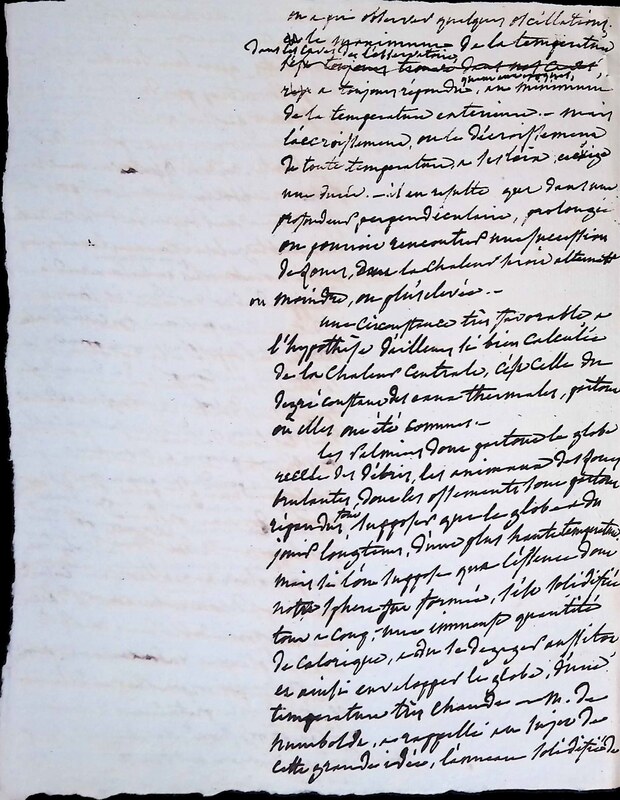 on a pu observer quelques oscillations.
et le maximum de la temperature
Dans les caves de l'observatoire,
s'est toujours trouvé dans nos caves,
quarante
a toujours repondu, au minimum
de la temperature exterieure. - mais
l'accroissement, ou le décroissement
de toute temperature a ses loix, et exige
une durée. - il en resulte que dans une
profondeur perpendiculaire, prolongée
on pourroit rencontrer une succession
de zones, dans la chaleur seroit alternatt
ou moindre, ou plus elevée. -
une circonstance très favorable a
l'hypothèse d'ailleurs si bien calculée
de la chaleur centrale, c'est celle du
degré constant des eaux thermales, partout
où elles ont été connues -
les Palmiers dont partout le globe
recele des débris, les animaux des zones
brulantes, dont les ossements sont partout
répandus, font supposer que le globe a du
jouir longtems, d'une plus haute temperature,
mais si l'on suppose que l'essence dont
notre sphere fut formée, s'est solidifiée
tout a coup; une immense quantité
de calorique, a du se degager aussitot
et ainsi envelopper le globe, d'une
temperature très chaude - M. de
humbolde, a rappellé au sujet de
cette grande idée, l'anneau solidifié de